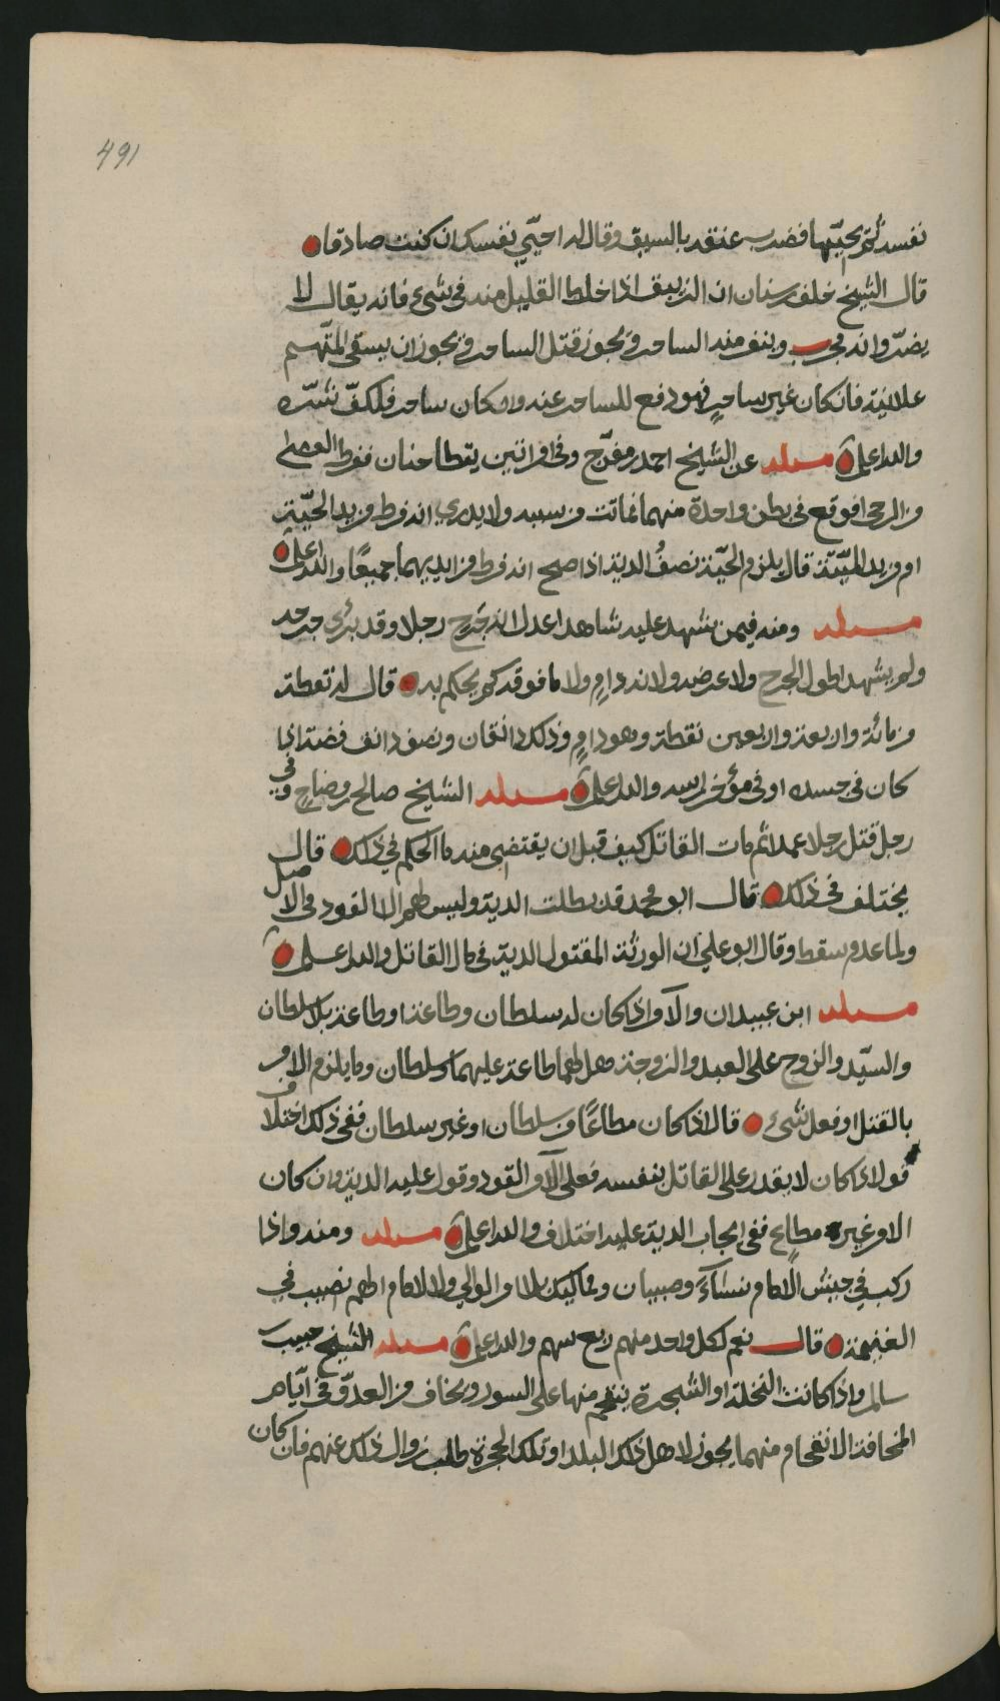 491
نفسه ثم يحيّيها فضرب عنقه بالسيف وقال له احيّي نفسك ان كنت صادقا
قال الشيخ خلف بن سنان ان الزيبق اذا خلط القليل منه في شيء فانه يقال لا
يضرّ وانه مجرب وينفر منه الساحر ويجوز قتل الساحر ويجوز ان يسقى المتّهم
علانية فان كان غير ساحرٍ فهو دفع للساحر عنه وان كان ساحر فلكفّ شرّه
والله اعلم مسئلة عن الشيخ احمد بن مفرّج وفي امراتين يتطاحنان ففرط العصى
من الرحى فوقع في بطن واحدة منهما فماتت من سببه ولا يدري انه فرط من يد الحيّة
ام من يد الميّتة قال يلزم الحيّة نصفُ الدية اذا صح انه فرط من ايديهما جميعًا والله اعلم
مسئلة ومنه فيمن يشهد عليه شاهدا عدل انه جرح رجلا وقد برئ جرحه
ولم يشهدا بطول الجرح ولا عرضه ولا انه دامٍ ولا ما فوقه كم يحكم به قال له نقطة
من مائة واربعة واربعين نقطة وهو دامٍ وذلك دانقان ونصف دانق فضة اذا
كان في جسده او في مؤخر راسه والله اعلم مسئلة الشيخ صالح بن وضاح وفي
رجل قتل رجلا عمدا ثم مات القاتل كيف قبل ان يقتضى منه ما الحكم في ذلك قال
يختلف في ذلك قال ابو محمد قد بطلت الدية وليس لهم الا القود في الاصل
ولما عدم سقط وقال ابو علي ان الورثة المقتول الدية في مال القاتل والله اعلم
مسئلة ابن عبيدان والآمر اذا كان له سلطان وطاعة او طاعة بلا سلطان
والسيّد والزوج على العبد والزوجة هل لهما طاعة عليهما وسلطان وما يلزم الامر
بالقتل او فعل شيء قال اذا كان مطاعًا من سلطان او غير سلطان ففي ذلك اختلاف
قول اذا كان لا يقدر على القاتل بنفسه فعلى الآمر القود وقول عليه الدية وان كان
الامر غير مطاع ففي ايجاب الدية عليه اختلاف والله اعلم مسئلة ومنه واذا
ركب في جيش الامام نساءَ وصبيان ومماليك بلا امر الوالي ولا الامام الهم نصيب في
الغنيمة قال نعم لكل واحد منهم ربع سهم والله اعلم مسئلة الشيخ حبيب بن
سالم واذا كانت النخلة او الشجرة ينقحم منها على السور ويخاف من العدوّ في ايّام
المخافة الانقحام منهما يجوز لاهل ذلك البلد او تلك الحجرة طلب زوال ذلك عنهم فان كان